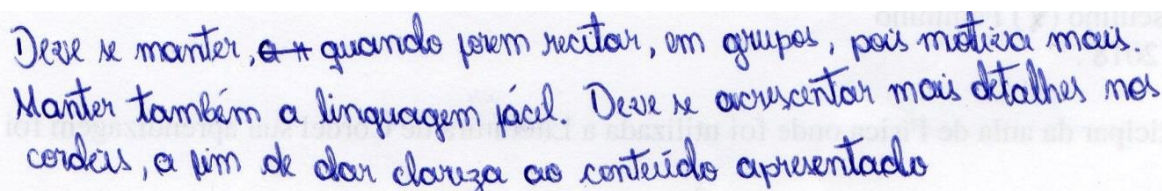 Deve se manter, quando forem recitar, em grupos, pois motiva mais.
Manter também a linguagem fácil. Deve se acrescentar mais detalhes nos
cordéis, a fim de dar clareza ao conteúdo apresentado